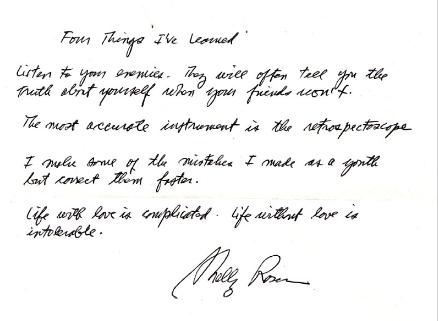 Four Things I've Learned
Listen to your enemies. They will often tell you the
truth about yourself when your friends won't.
The most accurate instrument is the retrospectoscope
I make some of the mistakes I made as a youth
but correct them faster.
Life with love is complicated. Life without love is
intolerable.
Shelly Rosen